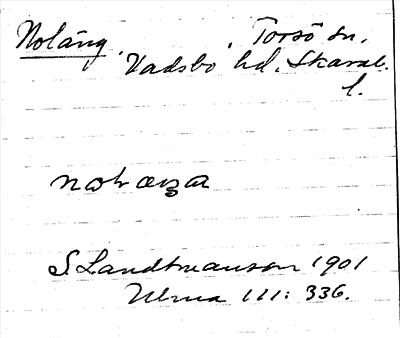 Noläng. Torsö sn.
Vadsbo hd. Skarab.
l.
S. Landtmanson 1901
Ulma 111: 336.